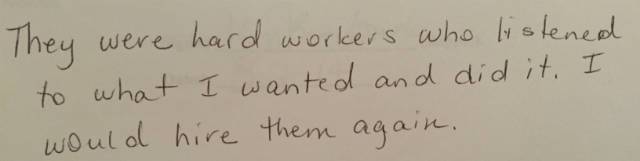 They were hard workers who listened
to what I wanted and did it. I
would hire them again.